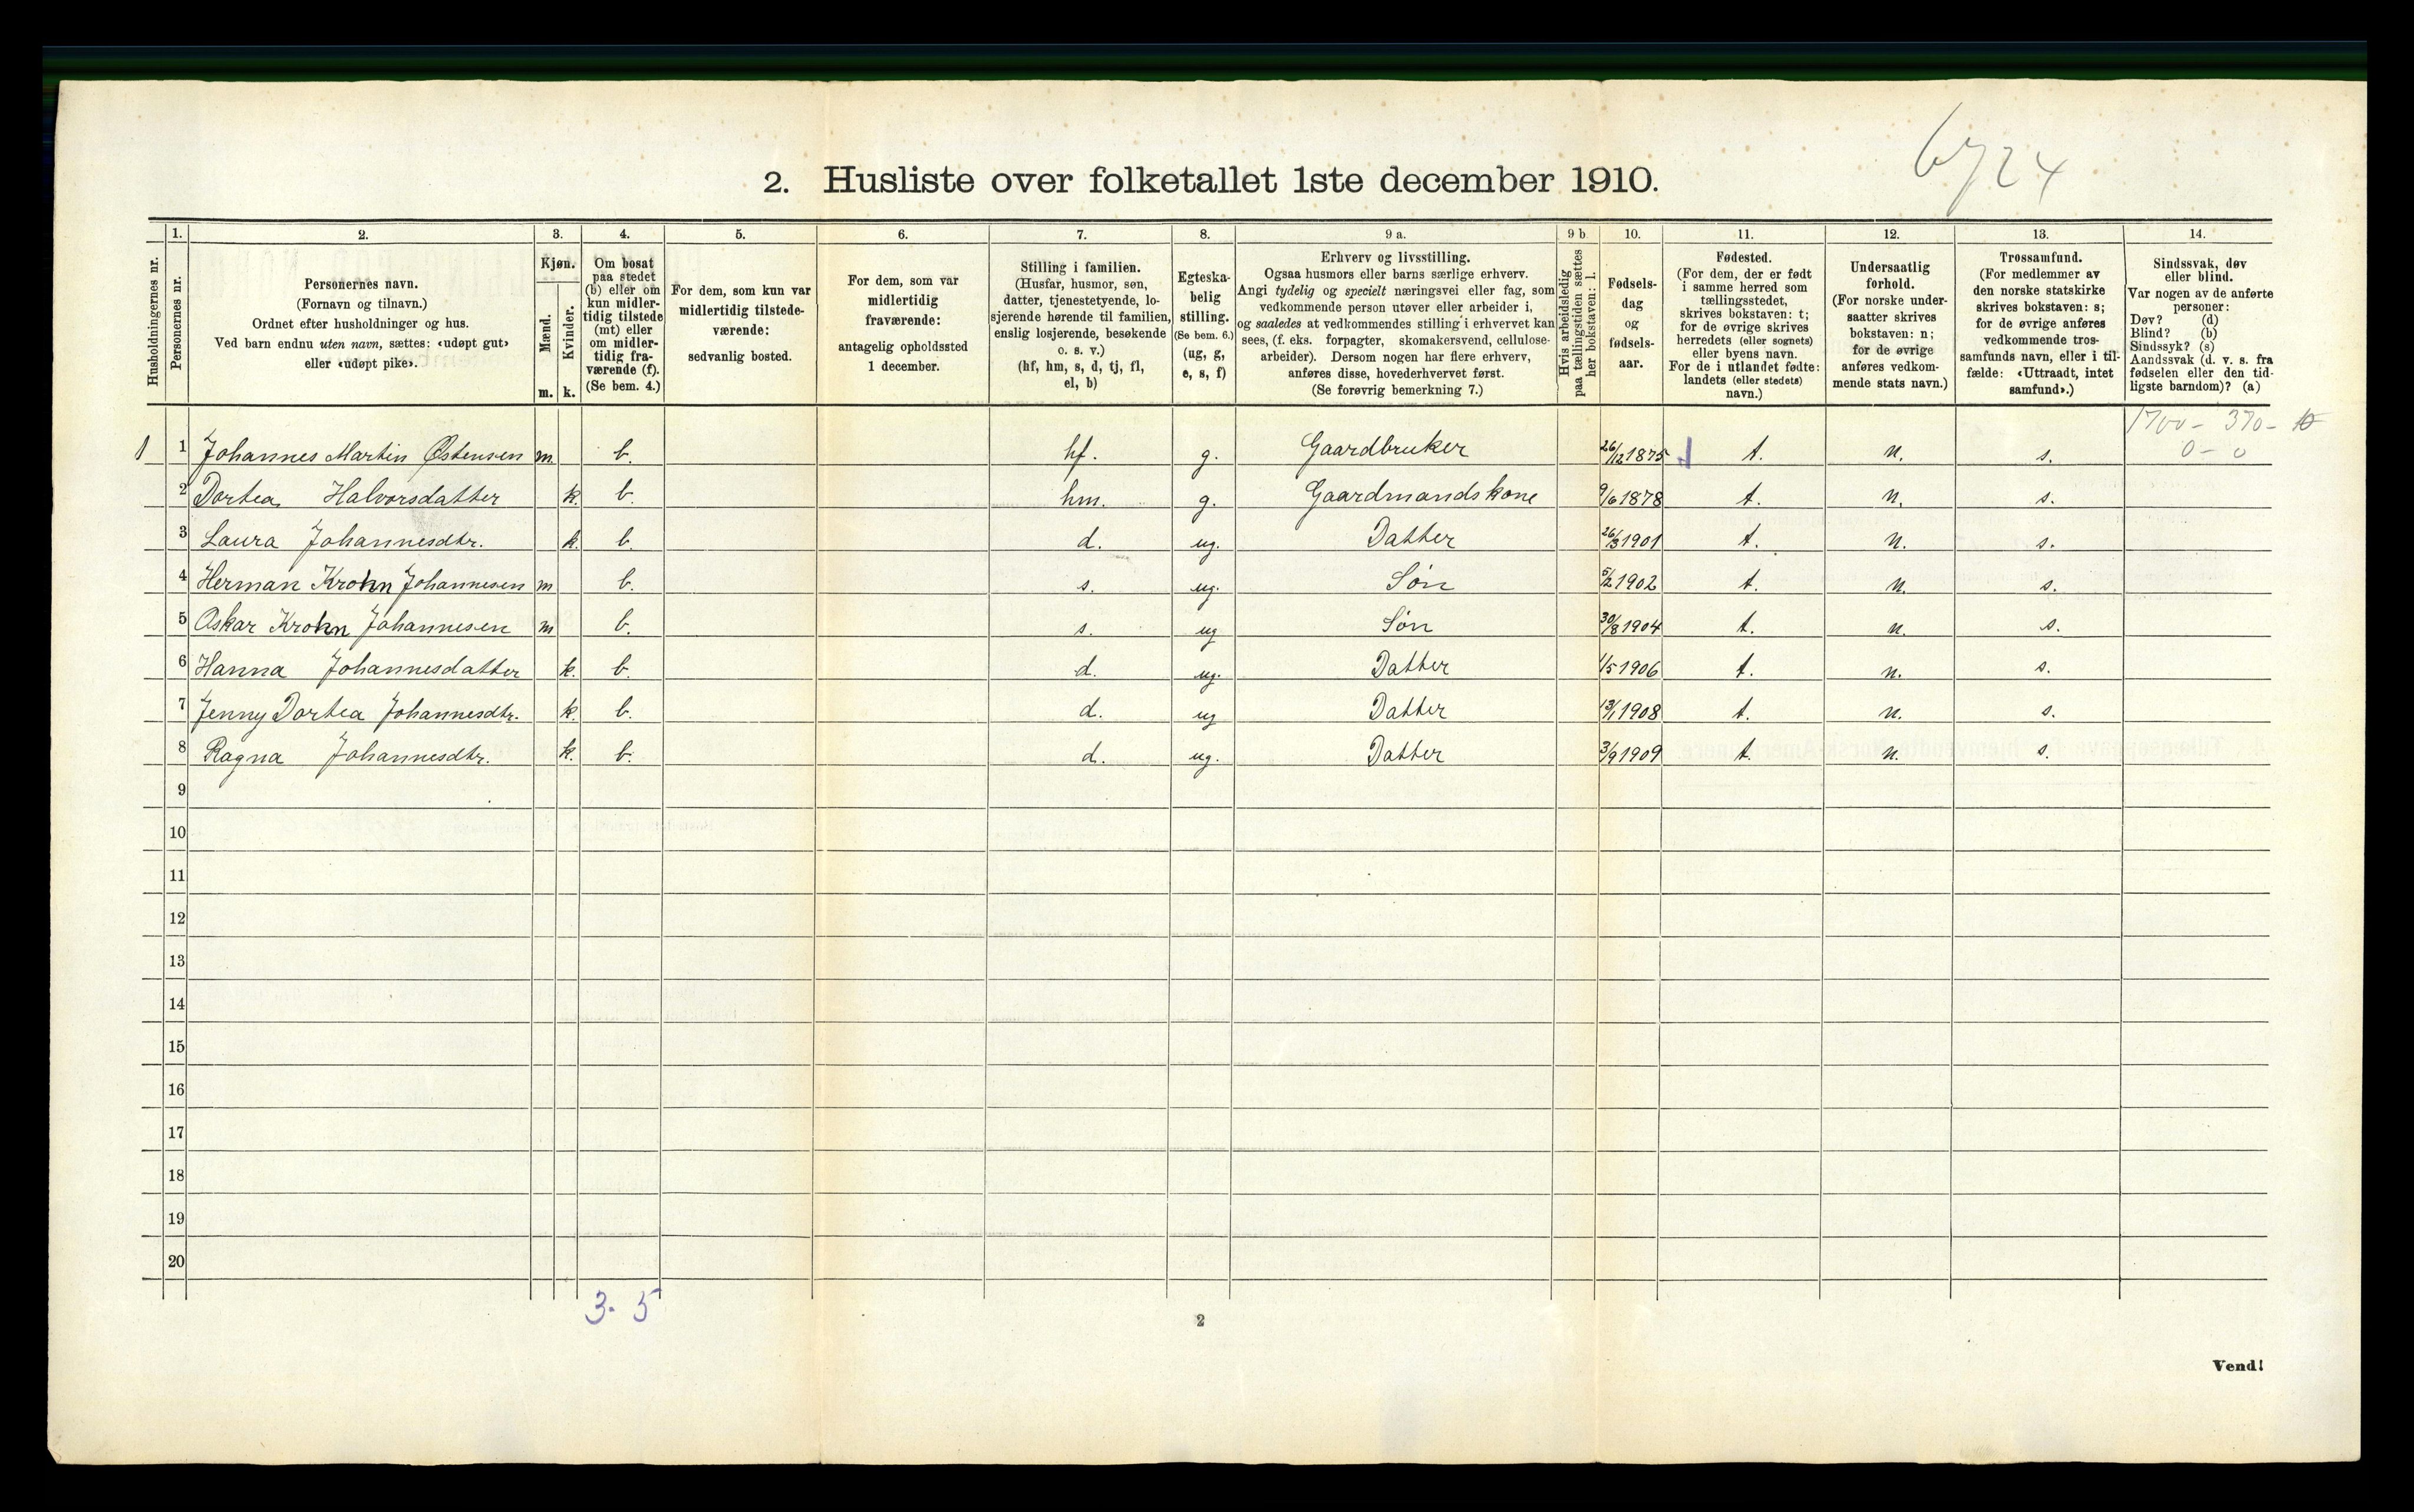 6724
2. Husliste over folketallet 1ste december 1910.
Husholdningernes nr.
1.
Personernes nr.
2.
Personernes navn.
(Fornavn og tilnavn.)
Ordnet efter husholdninger og hus.
Ved barn endnu uten navn, sættes: «udøpt gut»
eller «udøpt pike».
3.
Kjøn.
Mænd.
Kvinder.
m. k.
4.
Om bosat
paa stedet
(b) eller om
kun midler-
tidig tilstede
(mt) eller
om midler-
tidig fra-
værende (f).
(Se bem. 4.)
5.
For dem, som kun var
midlertidig tilstede-
værende:
sedvanlig bosted.
6.
For dem, som var
midlertidig
fraværende:
antagelig opholdssted
1 december.
7.
Stilling i familien.
(Husfar, husmor, søn,
datter, tjenestetyende, lo-
sjerende hørende til familien,
enslig losjerende, besøkende
o. s. v.)
(hf, hm, s, d, tj, fl,
el, b)
8.
Egteska-
belig
stilling.
(Se bem. 6.)
(ug, g,
e, s, f)
9 a.
Erhverv og livsstilling.
Ogsaa husmors eller barns særlige erhverv.
Angi tydelig og specielt næringsvei eller fag, som
vedkommende person utøver eller arbeider i,
og saaledes at vedkommendes stilling i erhvervet kan
sees, (f. eks. forpagter, skomakersvend, cellulose-
arbeider). Dersom nogen har flere erhverv,
anføres disse, hovederhvervet først.
(Se forøvrig bemerkning 7.)
9 b
Hvis arbeidsledig
paa tællingstiden sættes
her bokstaven: l.
10.
Fødsels-
dag
og
fødsels-
aar.
11.
Fødested.
(For dem, der er født
i samme herred som
tællingsstedet,
skrives bokstaven: t;
for de øvrige skrives
herredets (eller sognets)
eller byens navn.
For de i utlandet fødte:
landets (eller stedets)
navn.)
12.
Undersaatlig
forhold.
(For norske under-
saatter skrives
bokstaven: n;
for de øvrige
anføres vedkom-
mende stats navn.)
13.
Trossamfund.
(For medlemmer av
den norske statskirke
skrives bokstaven: s;
for de øvrige anføres
vedkommende tros-
samfunds navn, eller i til-
fælde: «Uttraadt, intet
samfund».)
14.
Sindssvak, døv
eller blind.
Var nogen av de anførte
personer:
Døv? (d)
Blind? (b)
Sindssyk? (s)
Aandssvak (d. v. s. fra
fødselen eller den tid-
ligste barndom)? (a)
1700 - 370 -
0 - 0
1 1 Johannes Martin Østensen m b. hf. g. Gaardbruker 26/12 1875 t. n. s.
2 Dortea Halvorsdatter k. b. hm. g. Gaardmandskone 9/6 1878 t. n. s.
3 Laura Johannesdtr. k. b. d. ug. Datter 26/3 1901 t. n. s.
4 Herman Krohn Johannesen m b. s. ug. Søn 5/2 1902 t. n. s.
5 Oskar Krohn Johannesen m b. s. ug Søn 30/8 1904 t. n. s.
6 Hanna Johannesdatter k. b. d. ug. Datter 1/5 1906 t. n. s.
7 Jenny Dortea Johannesdtr. k. b. d. ug Datter 13/1 1908 t. n. s.
8 Ragna Johannesdtr. k. b. d. ug. Datter 3/9 1909 t. n. s.
9
10
11
12
13
14
15
16
17
18
19
20
3. 5
2
Vend!